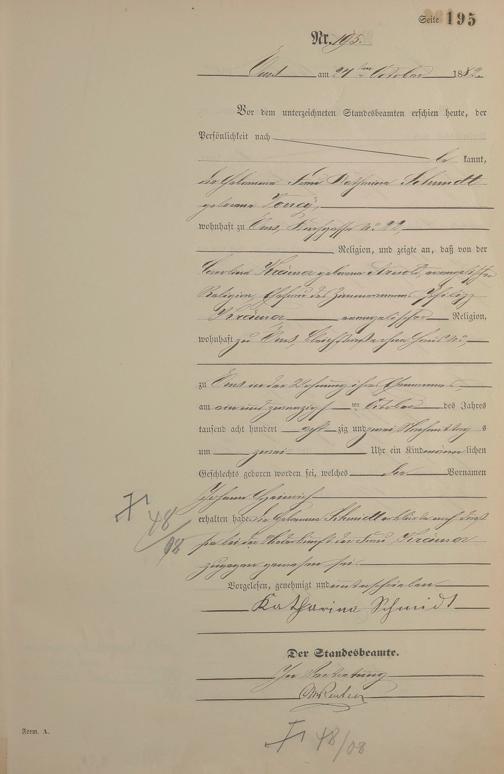 Seite 195
Nr. 195.
Ems am 24ten October 1882
Vor dem unterzeichneten Standesbeamten erschien heute, der
Persönlichkeit nach
be kannt,
die Hebamme Frau Katharina Schmidt
geborene
wohnhaft zu Ems, No 22,
Religion, und zeigte an, daß von der
geborene Arnold, evangelischer
Religion, Ehefrau des Zimmermanns
evangelischer Religion,
wohnhaft zu Ems,
zu Ems in der Wohnung ihres Ehemannes
am ein und zwanzigsten October des Jahres
tausend acht hundert acht zig und zwei Nachmittag s
um zwei Uhr ein Kind männ lichen
Geschlechts geboren worden sei, welches die Vornamen
Johann Heinrich
erhalten habe. Die Hebamme Schmidt erklärte noch, daß
sie bei der Niederkunft der Frau
zugegen gewesen sei.
Vorgelesen, genehmigt und unterschrieben
Katharina Schmidt
Der Standesbeamte.
In Vertretung
48/08
48/08
Form. A.